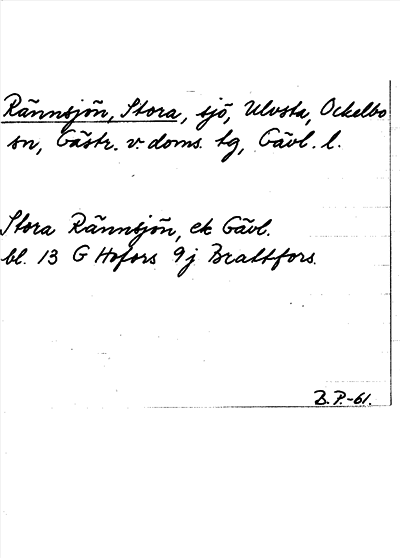 Rännsjön, Stora, sjö, Ulvsta, Ockelbo
sn, Gästr. v. doms. tg, Gävl. l.
Stora Rännsjön, ek Gävl.
bl. 13 G Hofors 9j Brattfors.
B.P.-61.